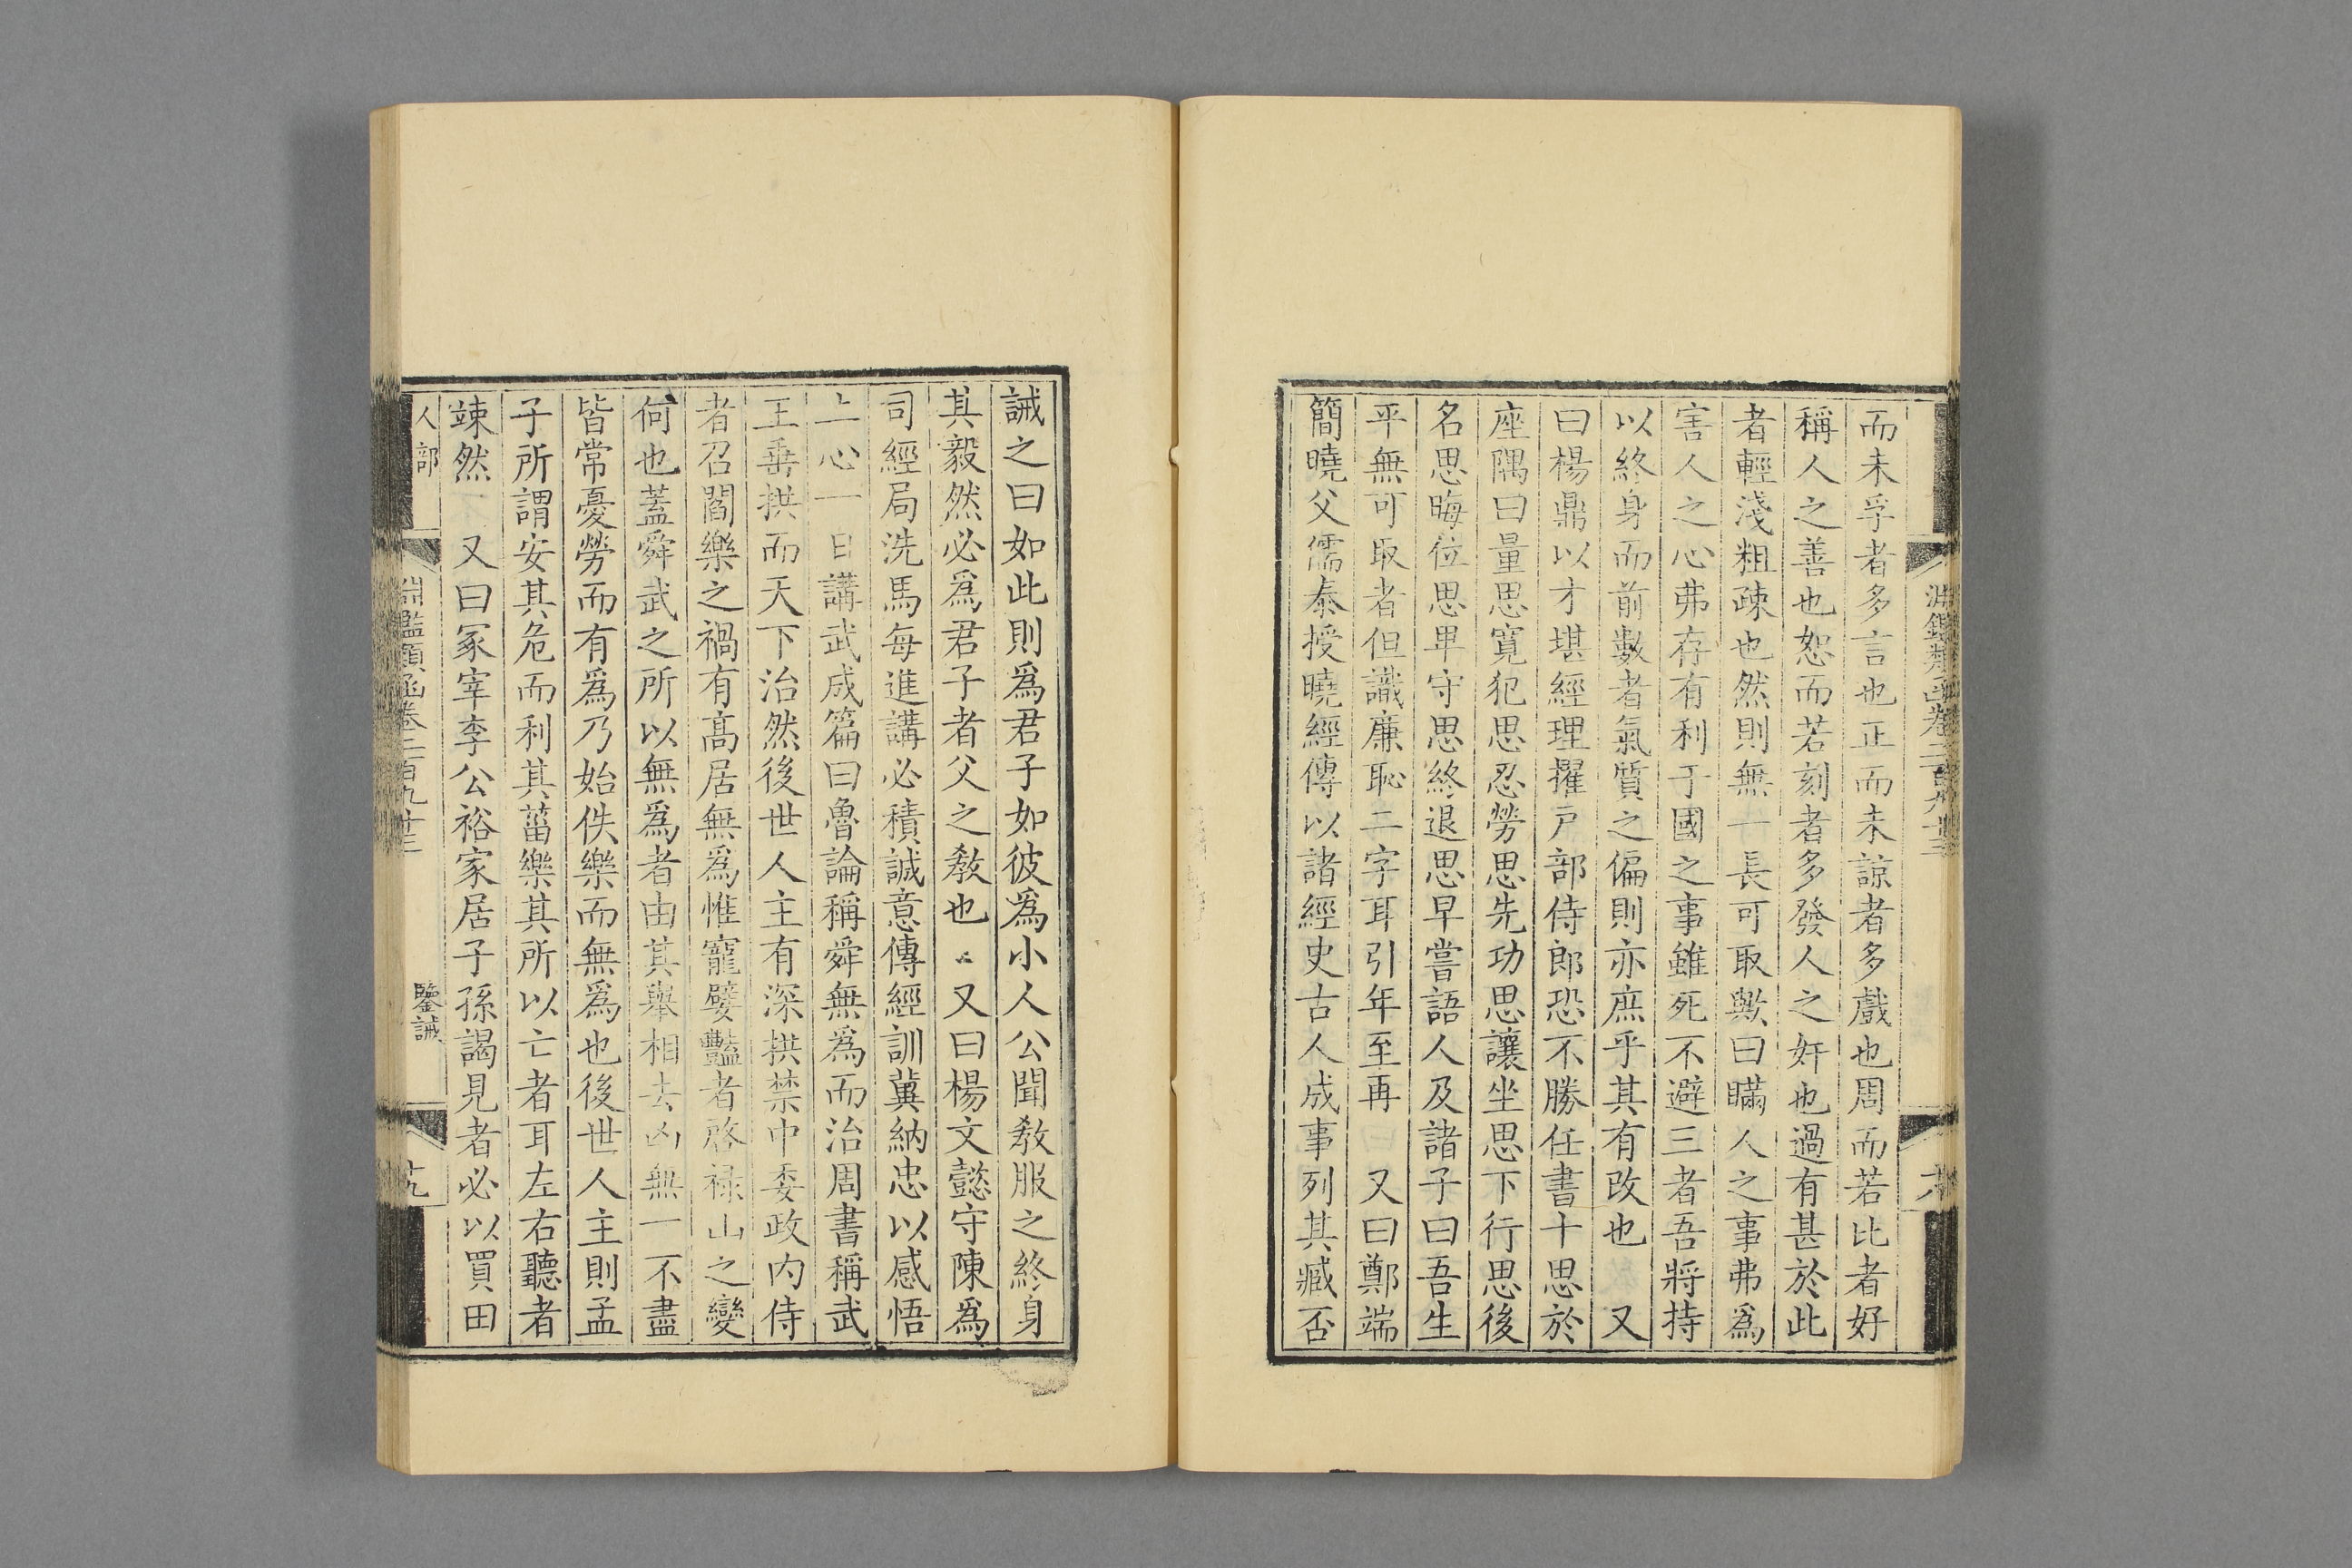 而未孚者多言也正而未諒者多戲也周而若比者好
稱人之善也恕而若刻者多發人之奸也過有甚於此
者輕淺粗疎也然則無一長可取歟曰瞞人之事弗為
害人之心弗存有利于國之事雖死不避三者吾將持
以終身而前數者氣質之偏則亦庶乎其有改也 又
曰楊鼎以才堪經理擢戸部侍郎恐不勝任書十思於
座隅曰量思寬犯思忍勞思先功思讓坐思下行思後
名思晦位思卑守思終退思早嘗語人及諸子曰吾生
平無可取者但識廉恥二字耳引年至再 又曰鄭端
簡曉父儒泰授曉經傳以諸經史古人成事列其臧否
淵鑑類函卷二百九十三
誡之曰如此則為君子如彼為小人公聞敎服之終身
其毅然必為君子者父之敎也 又曰楊文懿守陳為
司經局洗馬每進講必積誠意傳經訓冀納忠以感悟
上心一日講武成篇曰魯論稱舜無為而治周書稱武
王垂拱而天下治然後世人主有深拱禁中委政內侍
者召閻樂之禍有高居無為惟寵嬖豔者啓祿山之變
何也蓋舜武之所以無為者由其舉相去凶無一不盡
皆常憂勞而有為乃始佚樂而無為也後世人主則孟
子所謂安其危而利其菑樂其所以亡者耳左右聽者
竦然 又曰冢宰李公裕家居子孫謁見者必以買田
人部
淵鑑類函卷二百九十三
鑒誡